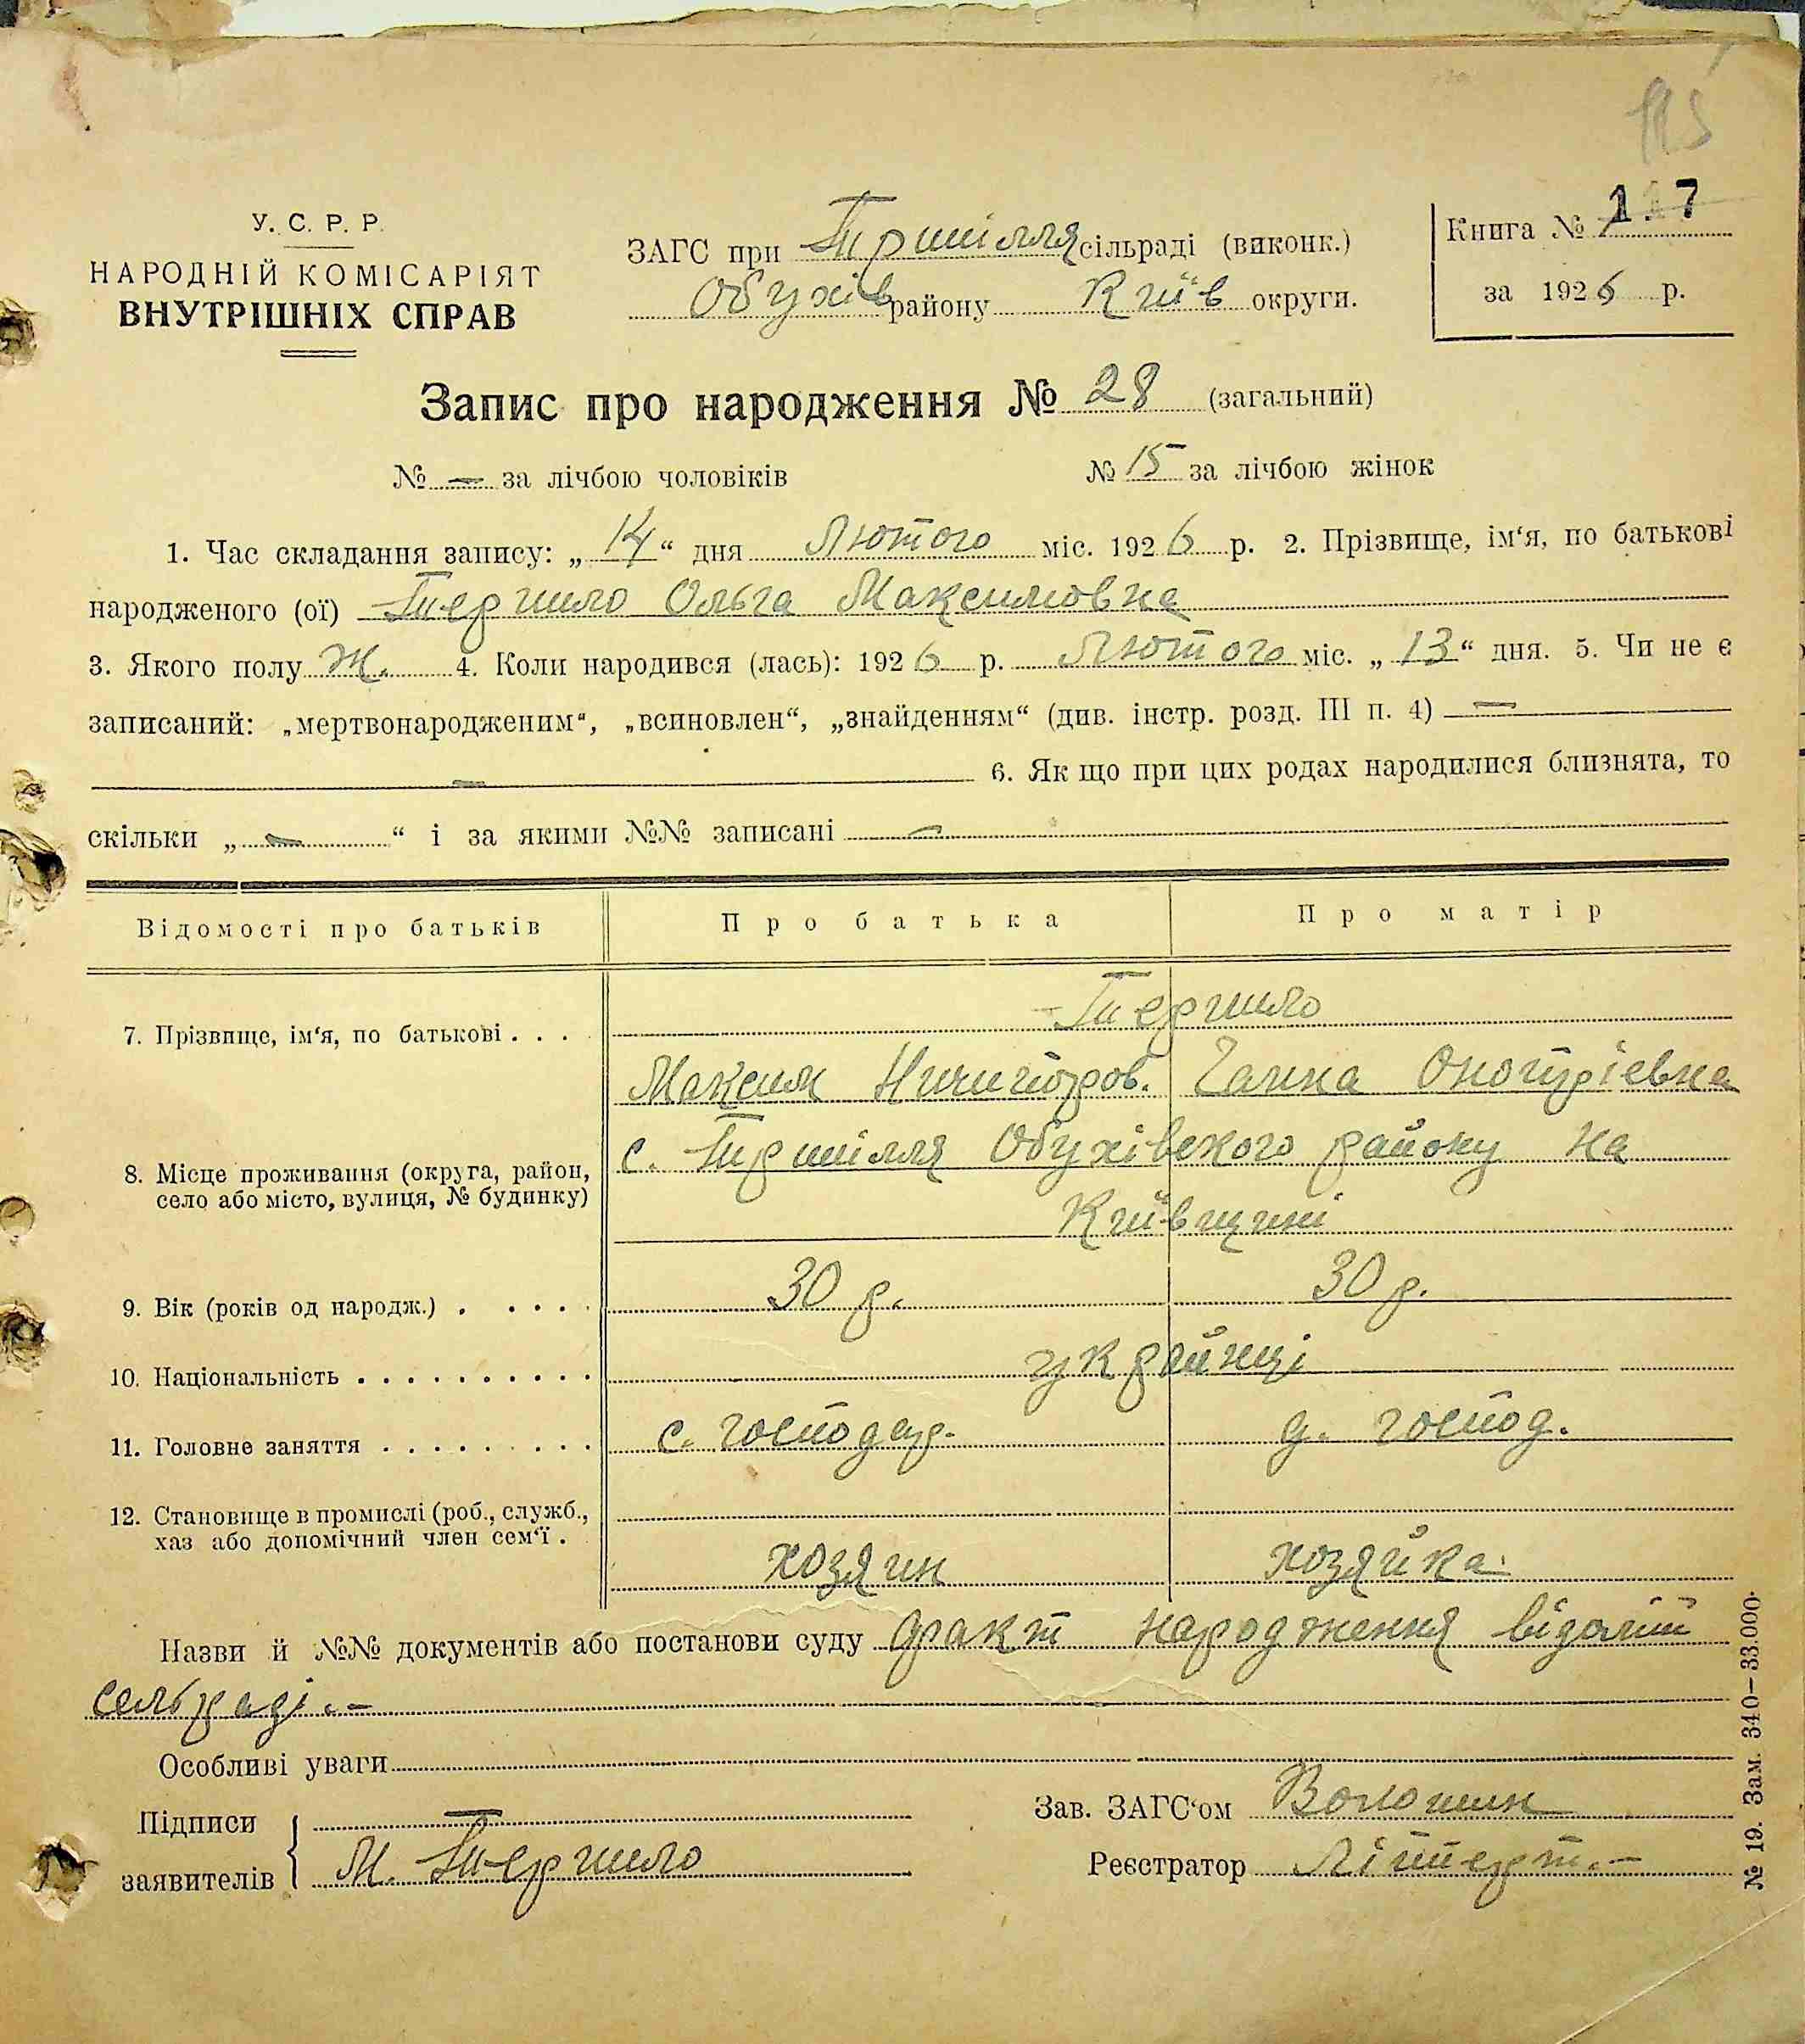 115
У. С. Р. Р.
НАРОДНІЙ КОМІСАРІЯТ
ВНУТРІШНІХ СПРАВ
ЗАГС при Трипілля сільраді (виконк.)
Обухів району Київ округи.
Книга №
за 1926 р.
Запис про народження № 28 (загальний)
№ — за лічбою чоловіків № 15 за лічбою жінок
1. Час складання запису: „ 14 “ дня Лютого міс. 1926 р. 2. Прізвище, ім‘я, по батькові
народженого (ої) Ольга Максимовна
3. Якого полу Ж. 4. Коли народився (лась): 1926 р. Лютого міс. „ 13 “ дня. 5. Чи не є
записаний: „мертвонародженим“, „всиновлен“, „знайденням“ (див. інстр. розд. III п. 4) —
— 6. Як що при цих родах народилися близнята, то
скільки „ — “ і за якими №№ записані —
Відомості про батьків Про батька Про матір
7. Прізвище, ім‘я, по батькові . . .
Максим Ничипоров. Ганна
8. Місце проживання (округа, район, село або місто, вулиця, № будинку) с. Трипілля Обухівського району на
Київщині
9. Вік (років од народж.) . . . . . 30 р. 30 р.
10. Національність . . . . . . . . . . українці
11. Головне заняття . . . . . . . . . с. господар. д. господ.
12. Становище в промислі (роб., служб.,
хаз або допомічний член сем‘ї . хозяин хозяйка.
Назви й №№ документів або постанови суду факт народження відомий
сельраді.—
Особливі уваги
Підписи
заявителів М.
Зав. ЗАГС‘ом Волошин
Реєстратор
№ 19. Зам. 340—33.000.